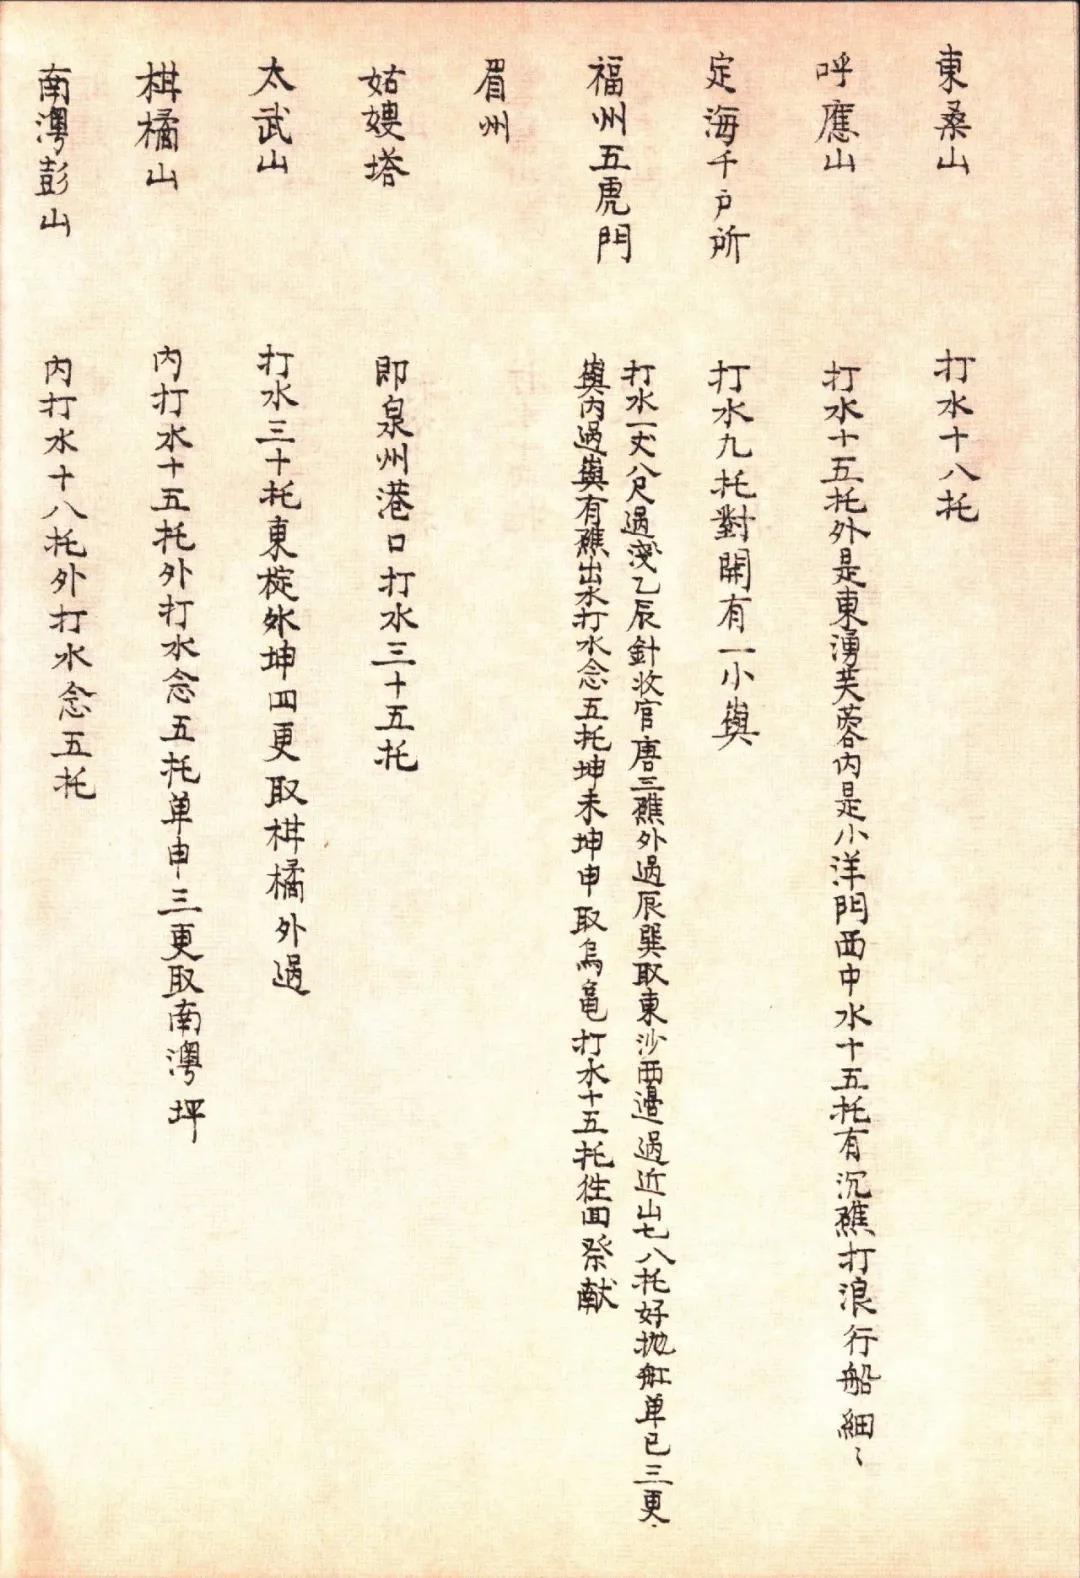 東桑山 打水十八托
呼應山 打水十五托外是東湧芙蓉內是小洋門西中水十五托有沉礁打浪行船細〻
定海千户所 打水九托對開有一小嶼
福州五虎門 打水一丈八尺過淺乙辰針收官唐三礁外過辰巽取東沙西邊過近山七八托好抛舡单巳三更
嶼内過嶼有礁出水打水念五托坤未坤申取烏龜打水十五托徃回祭献
眉州
姑嫂塔 即泉州港口打水三十五托
太武山 打水三十托東椗外坤四更取椇橘外過
椇橘山 内打水十五托外打水念五托单申三更取南澳坪
南澳彭山 内打水十八托外打水念五托